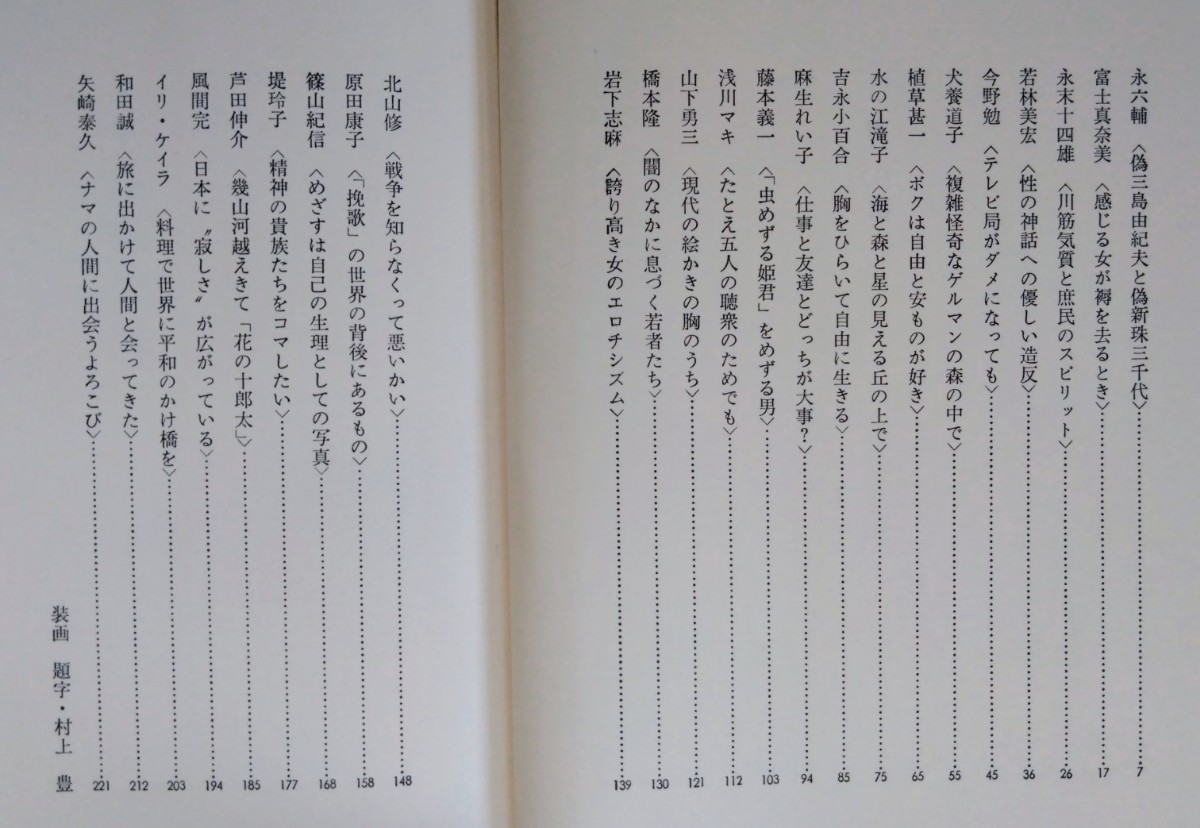 永六輔 〈偽三島由紀夫と偽新珠三千代〉……………… 7
富士真奈美 〈感じる女が褥を去るとき〉……………… 17
永末十四雄 〈川筋気質と庶民のスピリット〉……………… 26
若林美宏 〈性の神話への優しい造反〉……………… 36
今野勉 〈テレビ局がダメになっても〉……………… 45
犬養道子 〈複雑怪奇なゲルマンの森の中で〉……………… 55
植草甚一 〈ボクは自由と安ものが好き〉……………… 65
水の江滝子 〈海と森と星の見える丘の上で〉……………… 75
吉永小百合 〈胸をひらいて自由に生きる〉……………… 85
麻生れい子 〈仕事と友達とどっちが大事？〉……………… 94
藤本義一 〈「虫めずる姫君」をめずる男〉……………… 103
浅川マキ 〈たとえ五人の聴衆のためでも〉……………… 112
山下勇三 〈現代の絵かきの胸のうち〉……………… 121
橋本隆 〈闇のなかに息づく若者たち〉……………… 130
岩下志麻 〈誇り高き女のエロチシズム〉……………… 139
北山修 〈戦争を知らなくって悪いかい〉……………… 148
原田康子 〈「挽歌」の世界の背後にあるもの〉……………… 158
篠山紀信 〈めざすは自己の生理としての写真〉……………… 168
堤玲子 〈精神の貴族たちをコマしたい〉……………… 177
芦田伸介 〈幾山河越えきて「花の十郎太」〉……………… 185
風間完 〈日本に〝寂しさ〟が広がっている〉……………… 194
イリ・ケイラ 〈料理で世界に平和のかけ橋を〉……………… 203
和田誠 〈旅に出かけて人間と会ってきた〉……………… 212
矢崎泰久 〈ナマの人間に出会うよろこび〉……………… 221
装画 題字・村上 豊